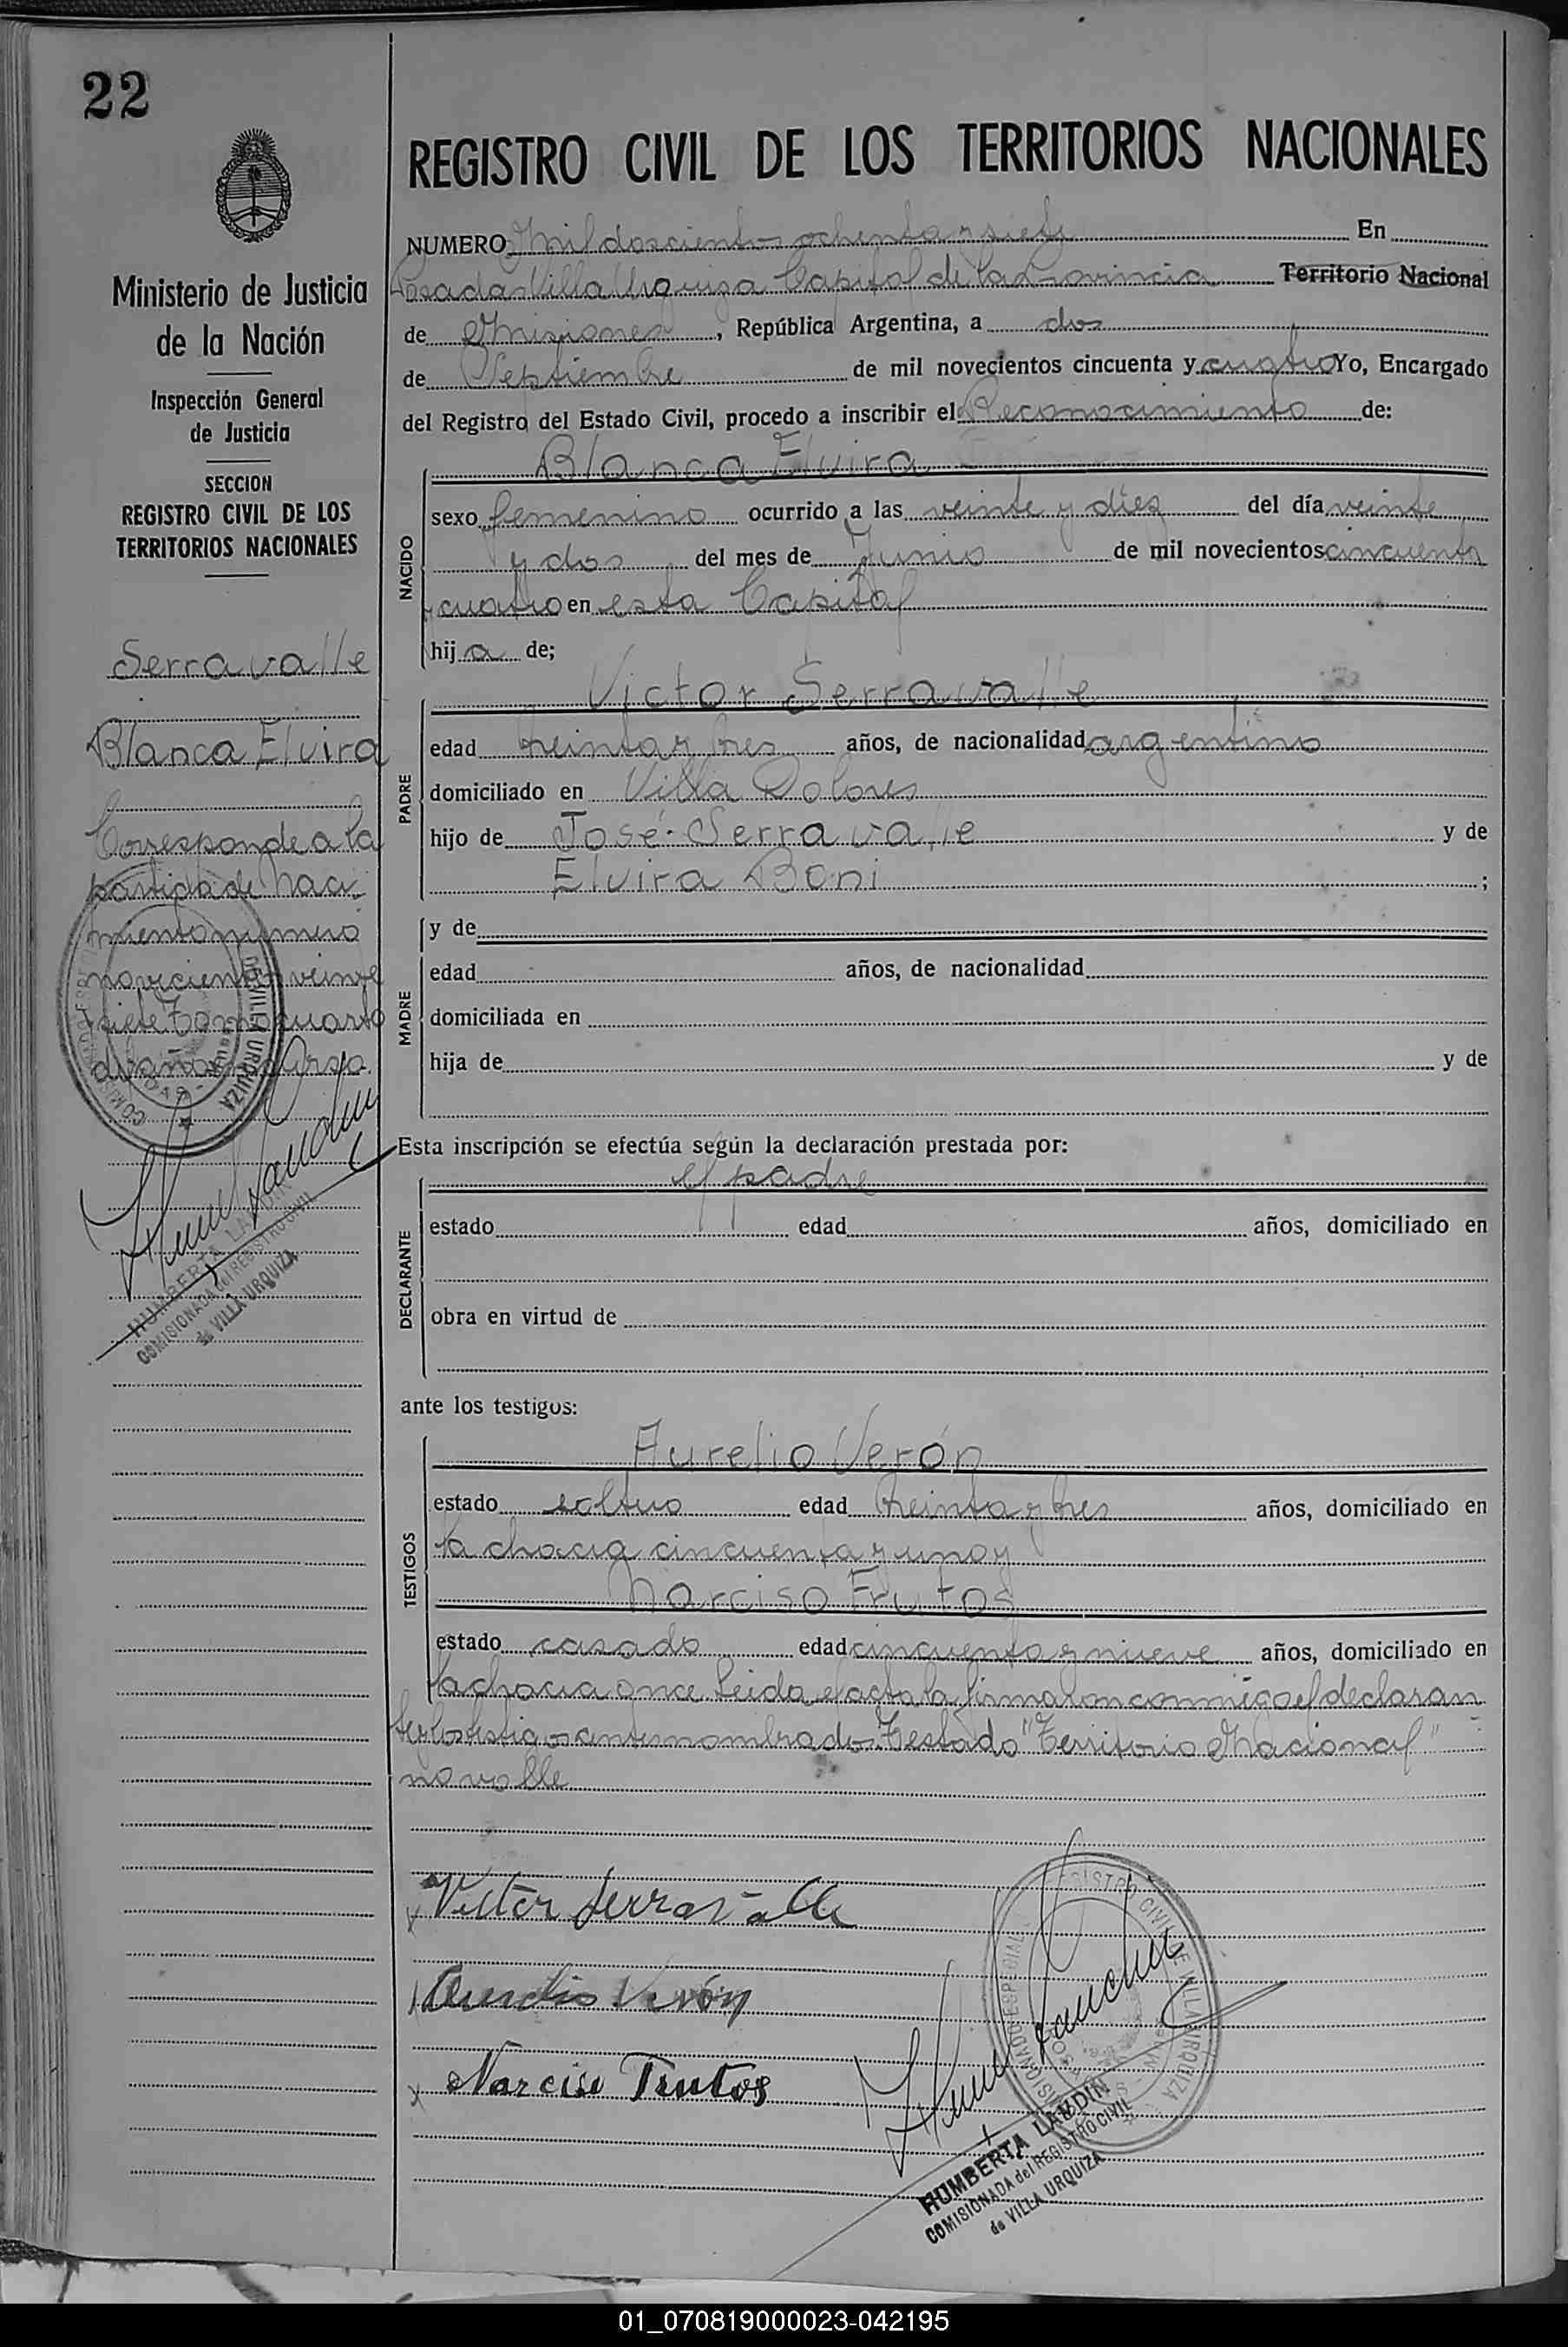 22
REGISTRO CIVIL DE LOS TERRITORIOS NACIONALES
Ministerio de Justicia
de la Nación
Inspección General
de Justicia
SECCION
REGISTRO CIVIL DE LOS
TERRITORIOS NACIONALES
Serravalle
Blanca Elvira
Corresponde a la
partida de naci
miento número
novecientos veinte
y siete Tomo cuarto
NUMERO Mil doscientos ochenta y siete En
Posadas Villa Urquiza Capital de la Provincia Territorio Nacional
de Misiones, República Argentina, a dos
de Septiembre de mil novecientos cincuenta y cuatro Yo, Encargado
del Registro del Estado Civil, procedo a inscribir el Reconocimiento de:
NACIDO
Blanca Elvira
sexo femenino ocurrido a las veinte y diez del día veinte
y dos del mes de Junio de mil novecientos cincuenta
y cuatro en esta Capital
hija de;
PADRE
Victor Serravalle
edad treinta y tres años, de nacionalidad argentino
domiciliado en Villa Dolores
hijo de José Serravalle y de
Elvira Boni ;
MADRE
y de
edad años, de nacionalidad
domiciliada en
hija de y de
Esta inscripción se efectúa según la declaración prestada por:
DECLARANTE
el padre
estado edad años, domiciliado en
obra en virtud de
ante los testigos:
TESTIGOS
Aurelio Verón
estado soltero edad treinta y tres años, domiciliado en
la chacra cincuenta y uno y
Narciso Frutos
estado casado edad cincuenta y nueve años, domiciliado en
la chacra once. Leida el acta la firmaron conmigo el declaran
te y los testigos antes nombrados. Testado "Territorio Nacional"
no valle
Victor Serravalle
Aurelio Verón
Narciso Frutos
HUMBERTA LANDIN
COMISIONADA del REGISTRO CIVIL
de VILLA URQUIZA
HUMBERTA LANDIN
COMISIONADA del REGISTRO CIVIL
de VILLA URQUIZA
01_070819000023-042195